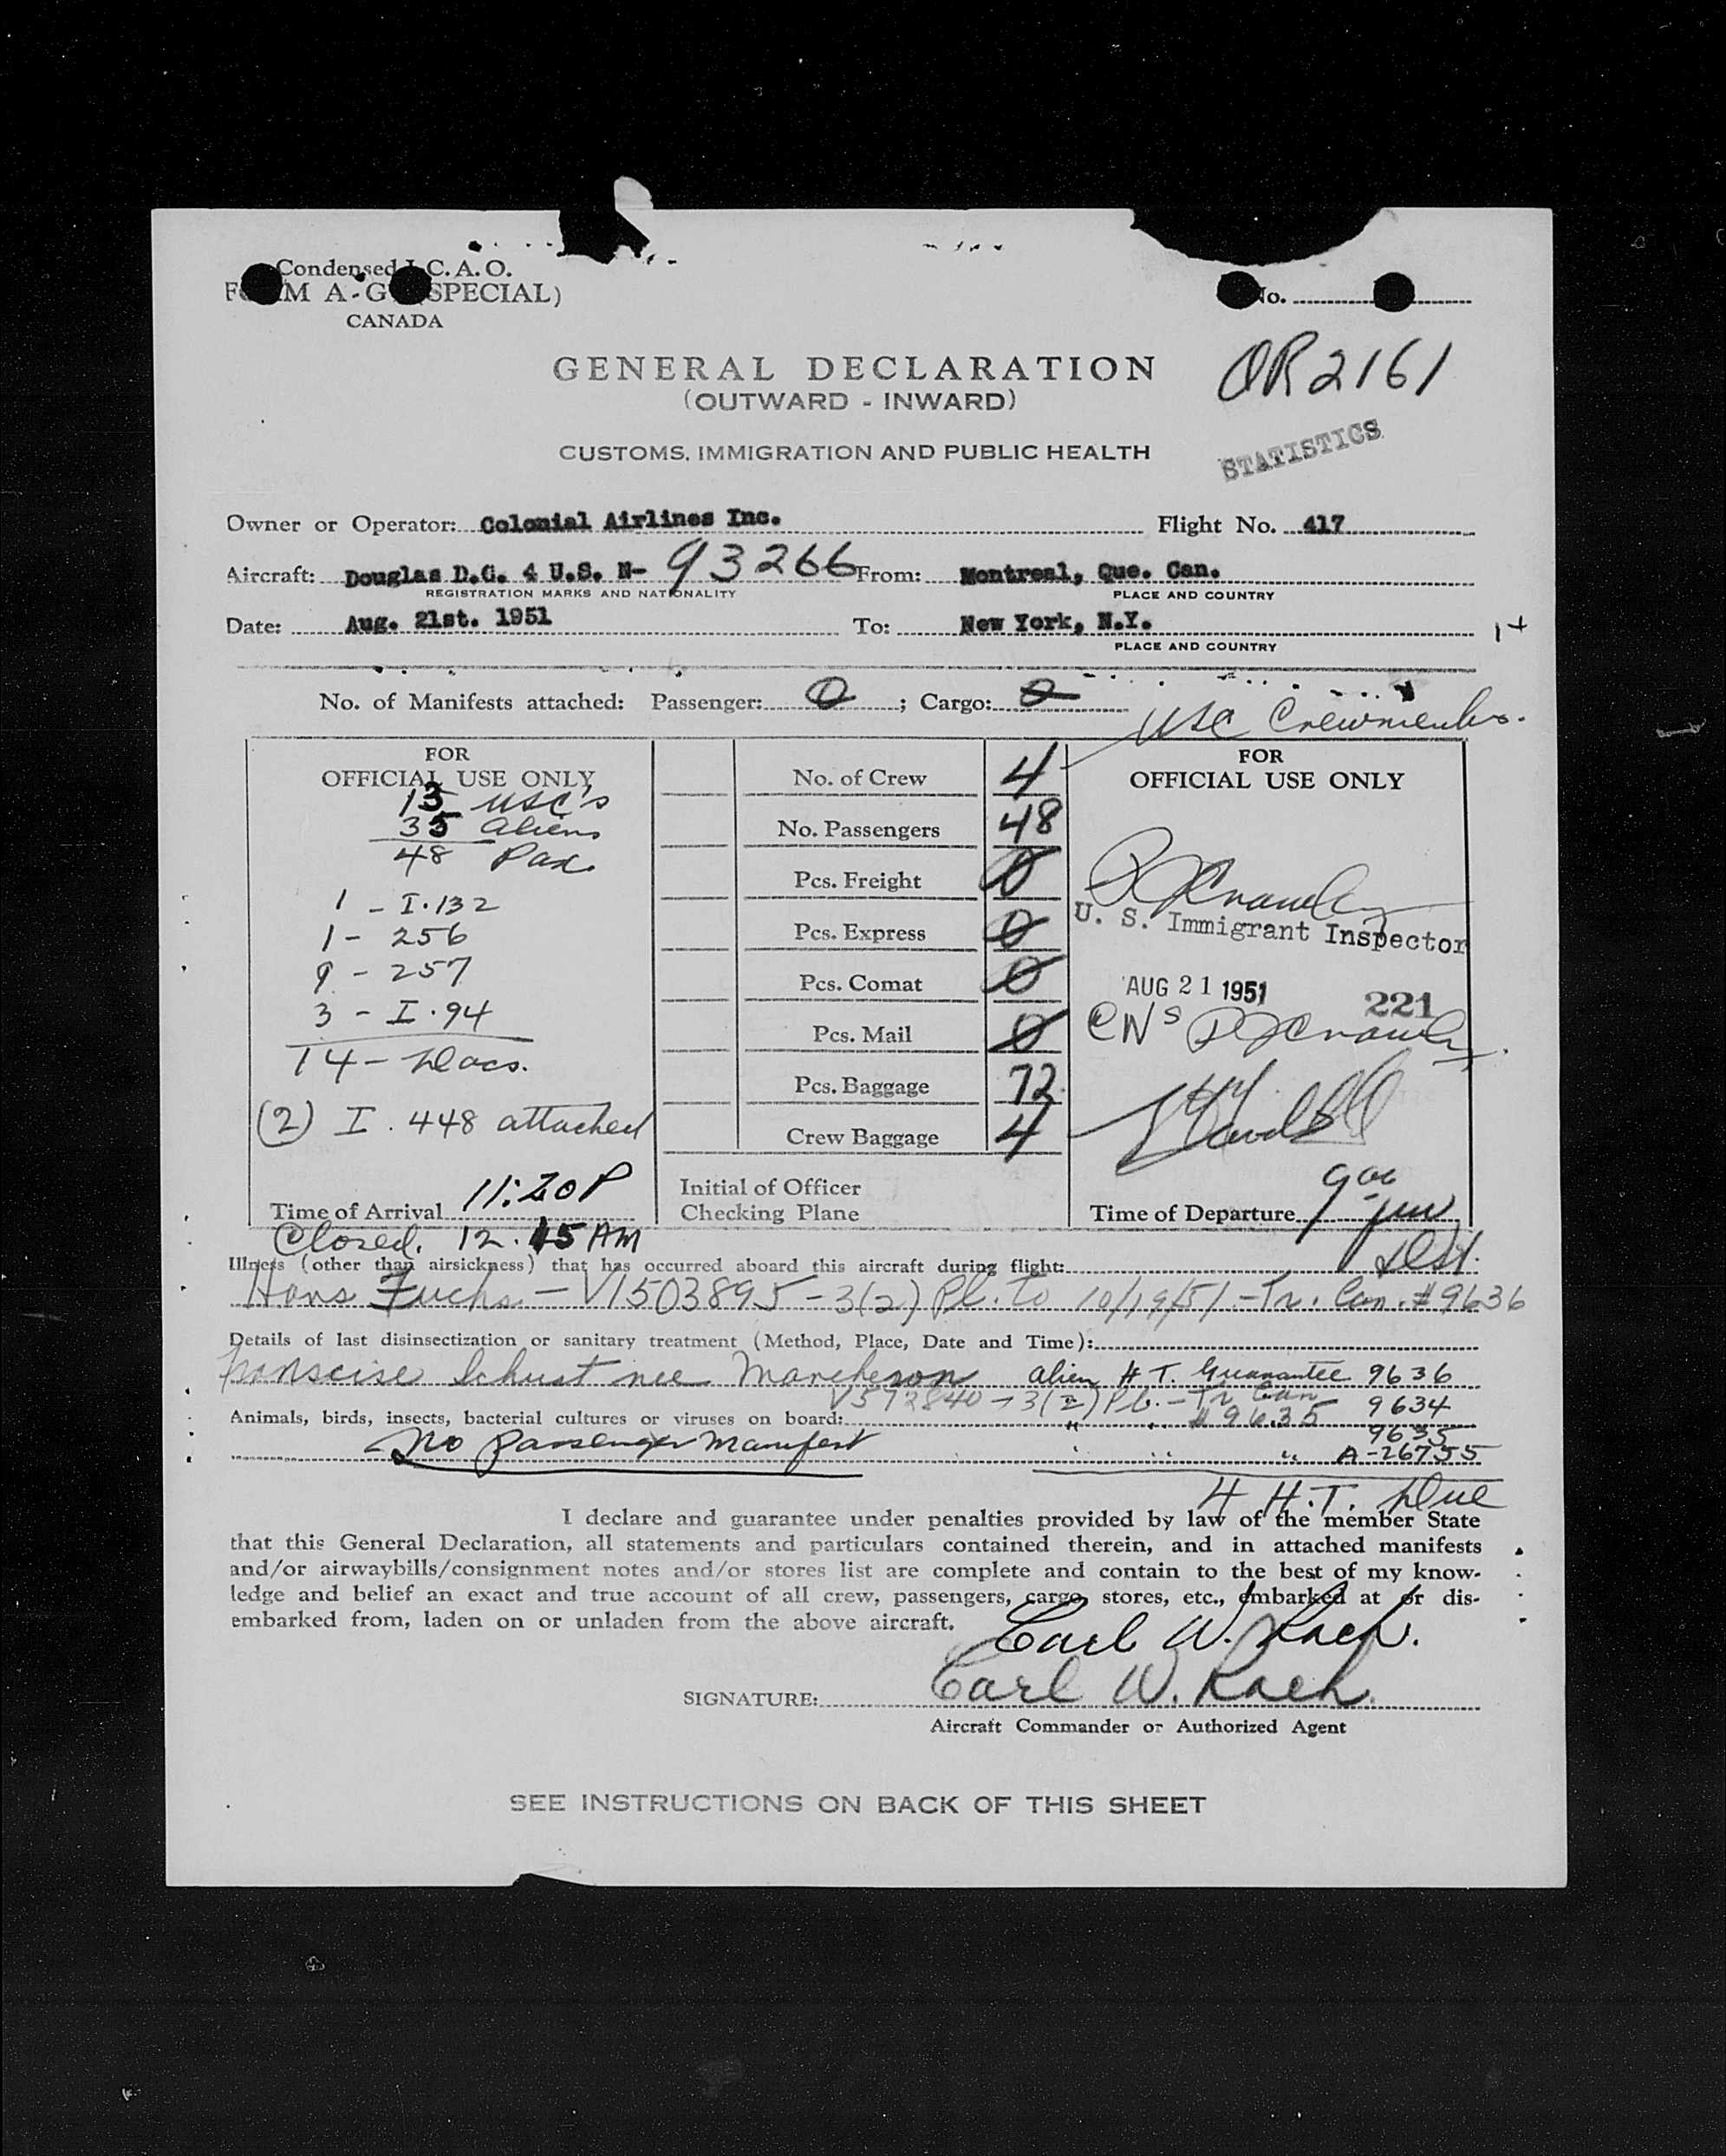 Condensed I.C.A.O.
FORM A-G (SPECIAL)
CANADA
No.
OR 2161
GENERAL DECLARATION
(OUTWARD - INWARD)
STATISTICS
CUSTOMS, IMMIGRATION AND PUBLIC HEALTH
Owner or Operator: Colonial Airlines Inc. Flight No. 417
Aircraft: Douglas D.C. 4 U.S. N- 93266 From: Montreal, Que. Can.
REGISTRATION MARKS AND NATIONALITY PLACE AND COUNTRY
Date: Aug. 21st. 1951 To: New York, N.Y.
PLACE AND COUNTRY
No. of Manifests attached: Passenger: 0 ; Cargo: 0
USC Crewmembers.
FOR
OFFICIAL USE ONLY
13 USC's
35 aliens
48 Pax
1 - I.132
1 - 256
9 - 257
3 - I.94
14 - Docs.
(2) I.448 attached
Time of Arrival 11:20 P
Closed. 12.15 AM
No. of Crew 4
No. Passengers 48
Pcs. Freight 0
Pcs. Express 0
Pcs. Comat 0
Pcs. Mail 0
Pcs. Baggage 72
Crew Baggage 4
Initial of Officer
Checking Plane
FOR
OFFICIAL USE ONLY
U. S. Immigrant Inspector
AUG 21 1951 221
Time of Departure 9 00 pm
DST.
Illness (other than airsickness) that has occurred aboard this aircraft during flight:
Hans Fuchs - V1503895 - 3(2) Pl. to 10/19/51 - Tr. Can. # 9636
Details of last disinsectization or sanitary treatment (Method, Place, Date and Time):
Schust nee Marcheson alien H T. Guarantee 9636
V572840 - 3(2) Pl. - Tr Can # 9635 9634
Animals, birds, insects, bacterial cultures or viruses on board:
9635
No Passenger Manifest " A-26755
4 H.T. Due
I declare and guarantee under penalties provided by law of the member State
that this General Declaration, all statements and particulars contained therein, and in attached manifests
and/or airwaybills/consignment notes and/or stores list are complete and contain to the best of my know-
ledge and belief an exact and true account of all crew, passengers, cargo, stores, etc., embarked at or dis-
embarked from, laden on or unladen from the above aircraft.
Carl W. Rach.
SIGNATURE: Carl W. Rach.
Aircraft Commander or Authorized Agent
SEE INSTRUCTIONS ON BACK OF THIS SHEET